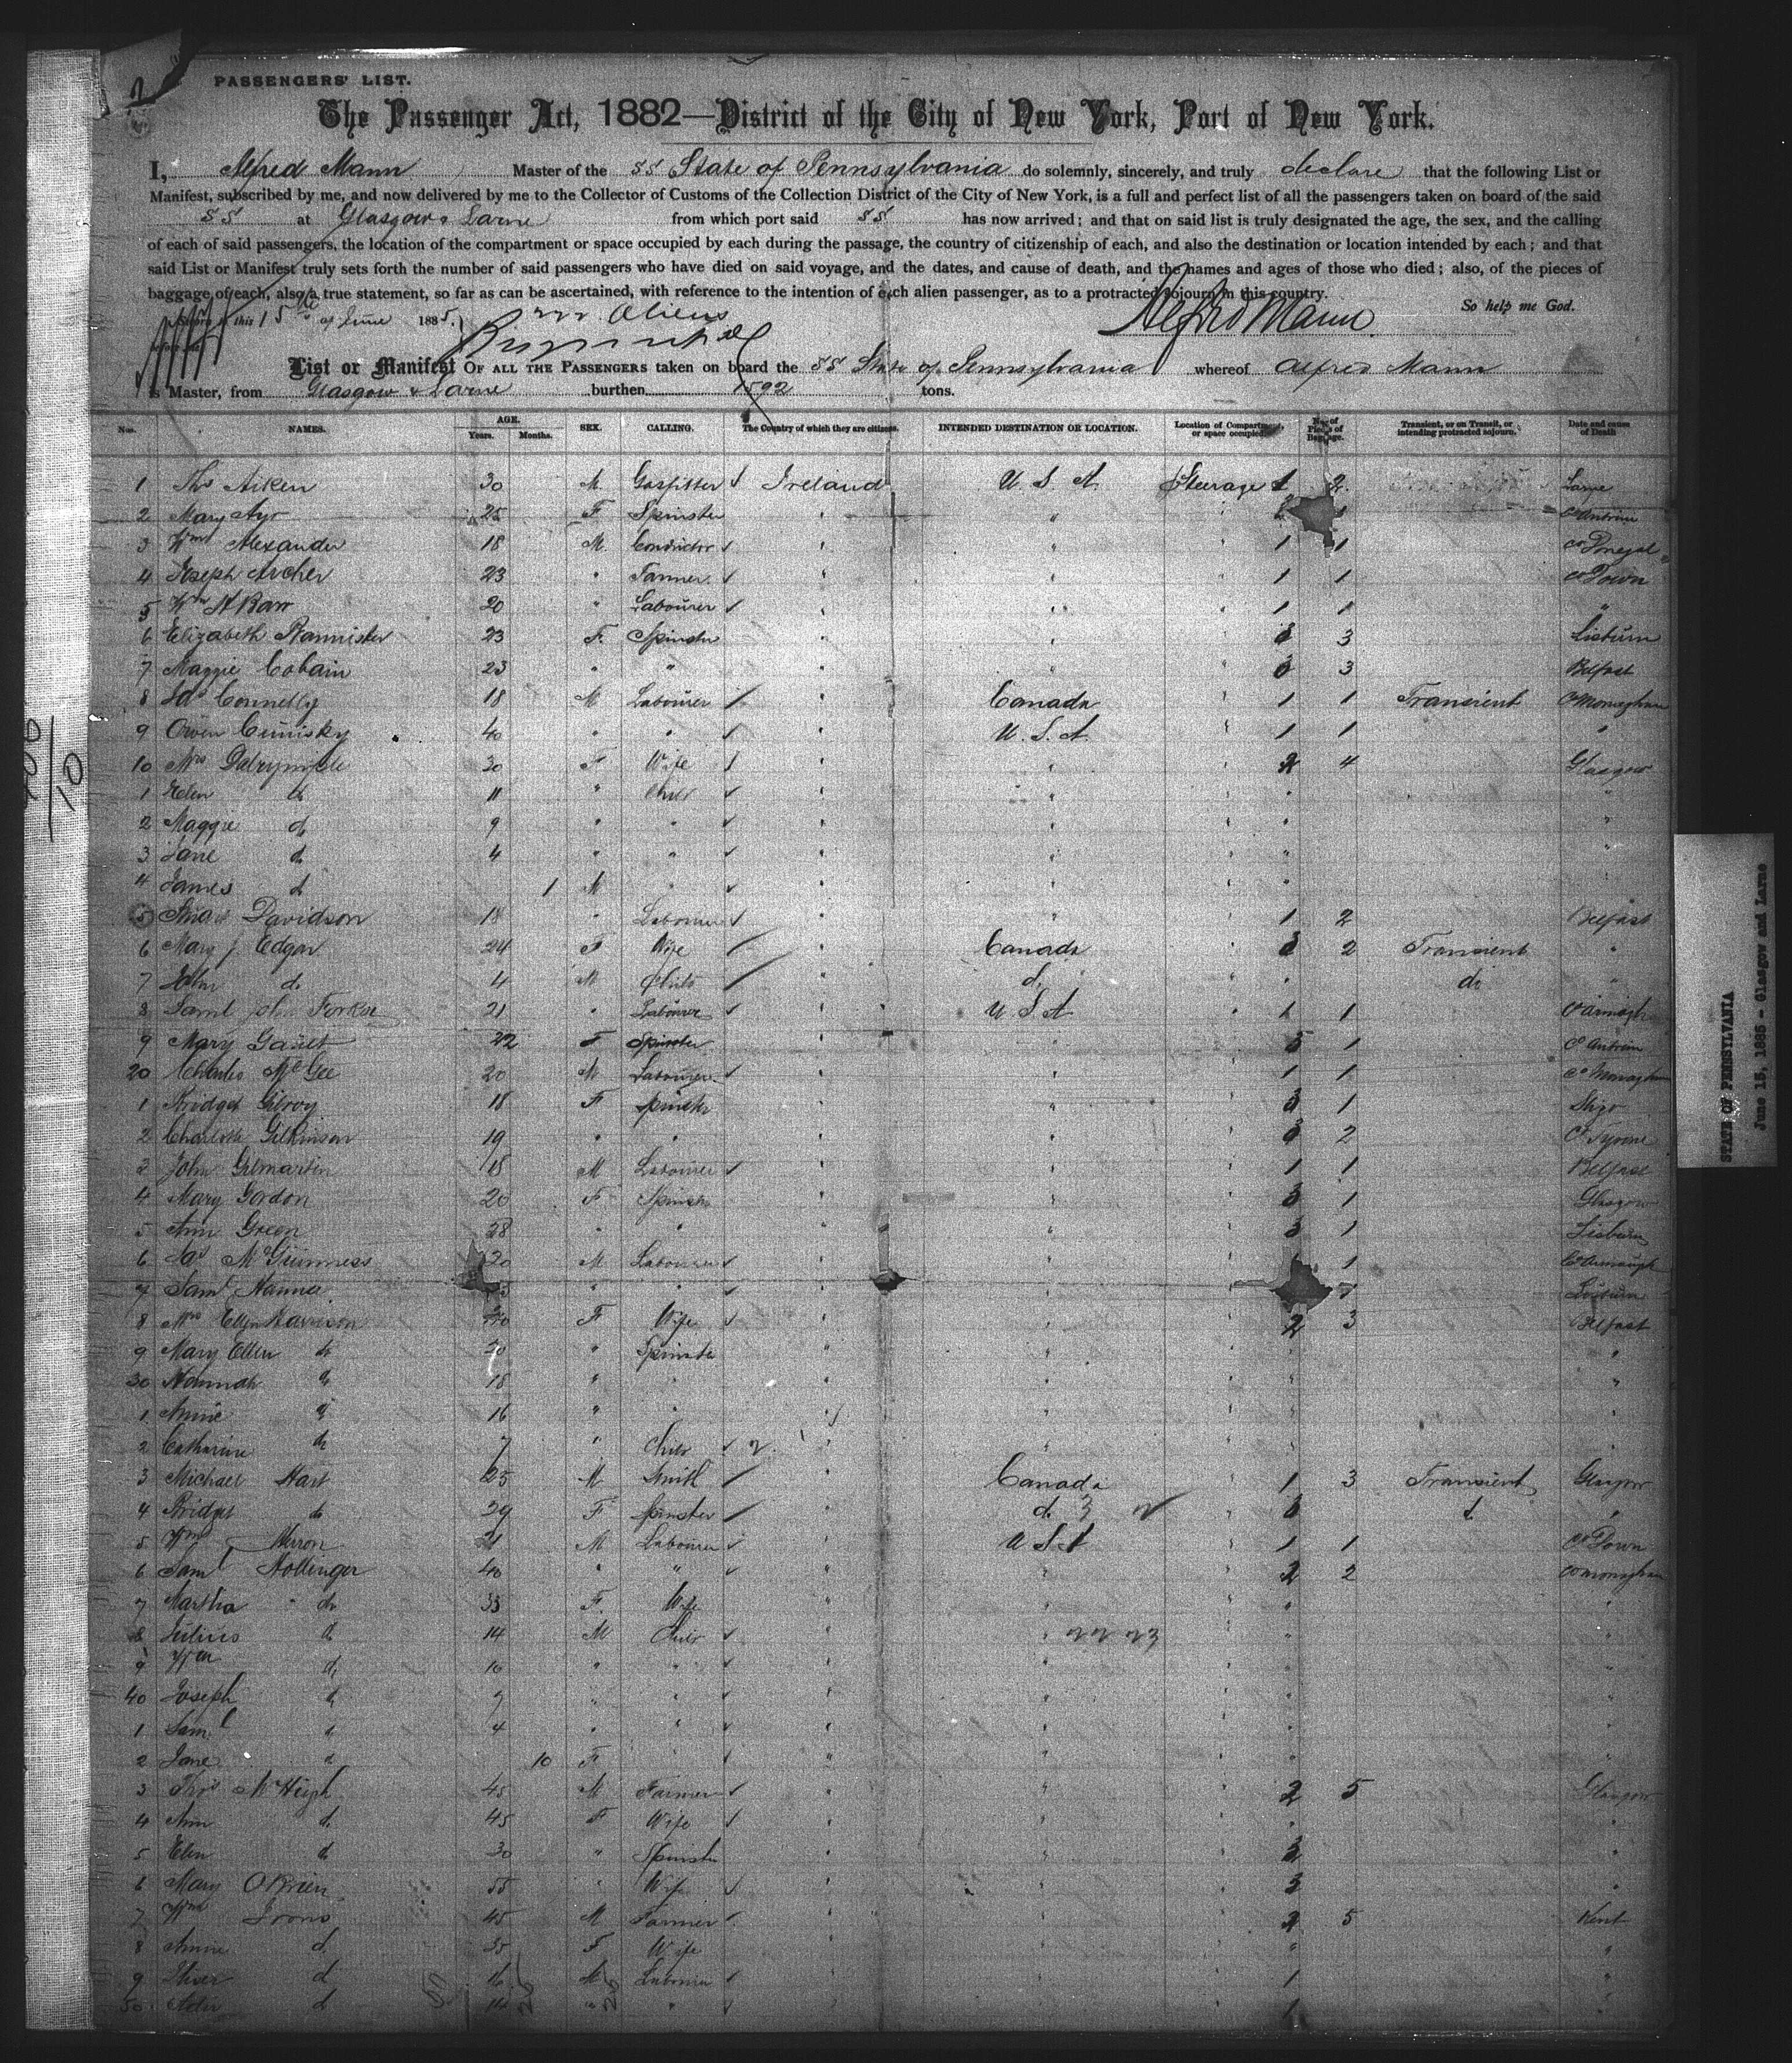 PASSENGERS' LIST.
The Passenger Act, 1882—District of the City of New York, Port of New York.
I, Alfred Mann Master of the SS State of Pennsylvania do solemnly, sincerely, and truly declare that the following List or
Manifest, subscribed by me, and now delivered by me to the Collector of Customs of the Collection District of the City of New York, is a full and perfect list of all the passengers taken on board of the said
SS at Glasgow & Larne from which port said SS has now arrived; and that on said list is truly designated the age, the sex, and the calling
of each of said passengers, the location of the compartment or space occupied by each during the passage, the country of citizenship of each, and also the destination or location intended by each; and that
said List or Manifest truly sets forth the number of said passengers who have died on said voyage, and the dates, and cause of death, and the names and ages of those who died; also, of the pieces of
baggage of each, also a true statement, so far as can be ascertained, with reference to the intention of each alien passenger, as to a protracted sojourn in this country.
So help me God.
this 15th of June 1885. Aliens
Alfred Mann
List or Manifest OF ALL THE PASSENGERS taken on board the SS State of Pennsylvania whereof Alfred Mann
is Master, from Glasgow & Larne burthen 1592 tons.
Nos. NAMES. AGE. Years. Months. SEX. CALLING. The Country of which they are citizens. INTENDED DESTINATION OR LOCATION. Location of Compartment, or space occupied. No. of Pieces of Baggage. Transient, or on Transit, or intending protracted sojourn. Date and cause of Death
1 Thos Aiken 30 M. Gasfitter Ireland U.S.A. Steerage 1 2 Larne
2 Mary 25 F Spinster " " 1 Co Antrim
3 Wm Alexander 18 M. Conductor " " 1 1 Co Donegal
4 Joseph Archer 23 " Farmer " " 1 1 Co Down
5 Wm A Barr 20 Labourer " " 1 1 "
6 Elizabeth Bannister 23 F. Spinster " " 3 3 Lisburn
7 Maggie Cobain 23 " " " " 3 3 Belfast
8 Jas Connelly 18 M Labourer " Canada 1 1 Transient Co Monaghan
9 Owen 40 " " " U.S.A. 1 1 "
10 Mrs Dalrymple 30 F Wife " " 2 4 Glasgow
1 Helen do 11 " Child " " " "
2 Maggie do 9 " " " " " "
3 Jane do 4 " " " " " "
4 James do 1 M " " " "
5 Davidson 18 " Labourer " " 1 2 Belfast
6 Mary J. Edgar 24 F Wife " Canada 3 2 Transient "
7 John do 4 M Child " do " do "
8 Saml John 21 " Labourer " U.S.A 1 1 Co Armagh
9 Mary Gault 22 F Spinster " " 3 1 Co Antrim
20 Charles McGee 20 M Labourer " " 1 1 Co Monaghan
1 Bridget Gilroy 18 F Spinster " " 3 1 Sligo
2 Charlotte Gilkinson 19 " " " " 3 2 Co Tyrone
3 John Gilmartin 18 M Labourer " " 1 1 Belfast
4 Mary Gordon 20 F Spinster " " 3 1 Glasgow
5 Ann Green 28 " " " " 3 1 Lisburn
6 Jas McGuinness 20 M Labourer " " 1 Co Armagh
7 Saml Hanna " " " " Lisburn
8 Mrs Ellen F Wife " " 2 3 Belfast
9 Mary Ellen do 20 " Spinster " " " "
30 Hannah do 18 " " " " " "
1 Annie do 16 " " " " " "
2 Catharine do 7 " Child " " " "
3 Michael Hart 25 M Smith " Canada 1 3 Transient Glasgow
4 Bridget do 29 F Spinster " do 3 do "
5 Wm Herron 21 M Labourer " U.S.A 1 1 Co Down
6 Saml Hollinger 40 " " " " 2 2 Co Monaghan
7 Martha do 33 F. Wife " " " "
8 Julius do 14 M Child " " " "
9 Wm do 10 " " " " " "
40 Joseph do 7 " " " " " "
1 Saml do 4 " " " " " "
2 Jane do 10 F " " " " "
3 Thos McHugh 45 M Farmer " " 2 5 Glasgow
4 Ann do 45 F Wife " " " "
5 Ellen do 30 " Spinster " " "
6 Mary O'Brien 55 " Wife " " "
7 Wm Irons 45 M Farmer " " 2 5 Kent
8 Annie do 35 F Wife " " " "
9 do 16 M Labourer " " 1 "
50 do 14 " " " " 1 "
STATE OF PENNSYLVANIA
June 15, 1885 - Glasgow and Larne